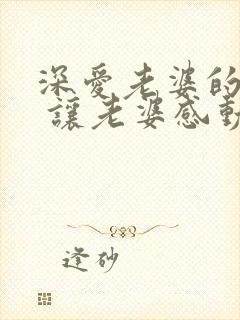 深愛老婆的
讓老婆感動
逢砂